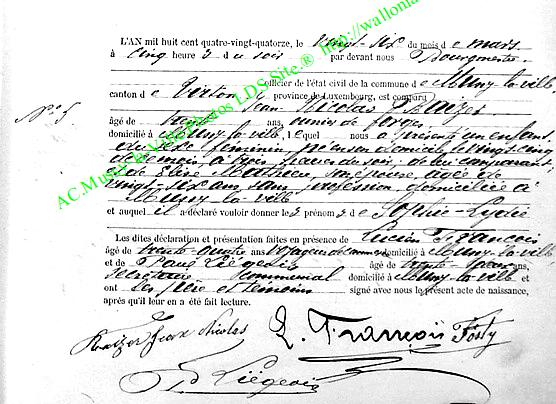 L'AN mil huit cent quatre-vingt-quatorze, le vingt-six du mois d e mars
à cinq heure s du soir par devant nous Bourgmestre
officier de l'état civil de la commune d e Mussy-la-ville,
canton d e Virton province de Luxembourg, est comparu
N° 5. Jean Nicolas
âgé de trente ans, ouvrier de forges
domicilié à Mussy-la-ville l equel nous a présenté un enfant
du sexe féminin, né en son domicile, le vingt cinq
de ce mois à trois heures du soir; de lui comparant
et de son épouse, âgée de
vingt-six ans sans profession, domiciliée à
Mussy-la-ville
et auquel il a déclaré vouloir donner le s prénom s d e Sophie-Lydie
Les dites déclaration et présentation faites en présence de Lucien François
âgé de trente-quatre ans domicilié à Mussy-la-ville
et de Paul Liégeois âgé de trente ans,
secrétaire communal domicilié à Mussy-la-ville et
ont les père et témoins signé avec nous le présent acte de naissance,
après qu'il leur en a été fait lecture.
Jean Nicolas L. François Fosty
P Liégeois
AC.Mussy-la-Ville Photos L.D.S Site.® http://wallonia